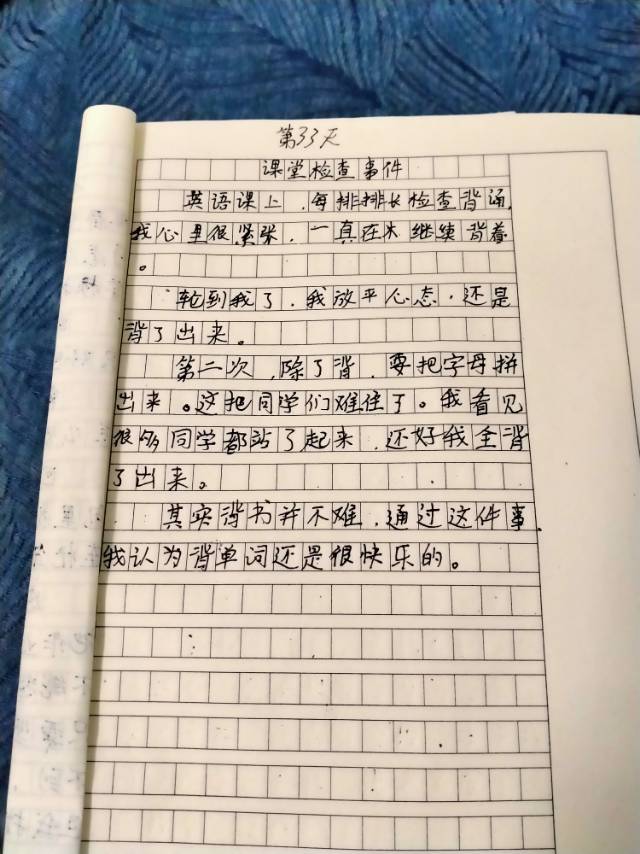 第33天
课堂检查事件
英语课上，每排排长检查背诵，
我心里很紧张，一真在木继续背着
。
轮到我了，我放平心态，还是
背了出来。
第二次，除了背，要把字母拼
出来。这把同学们难住了。我看见
很多同学都站了起来，还好我全背
了出来。
其实背书并不难，通过这件事，
我认为背单词还是很快乐的。